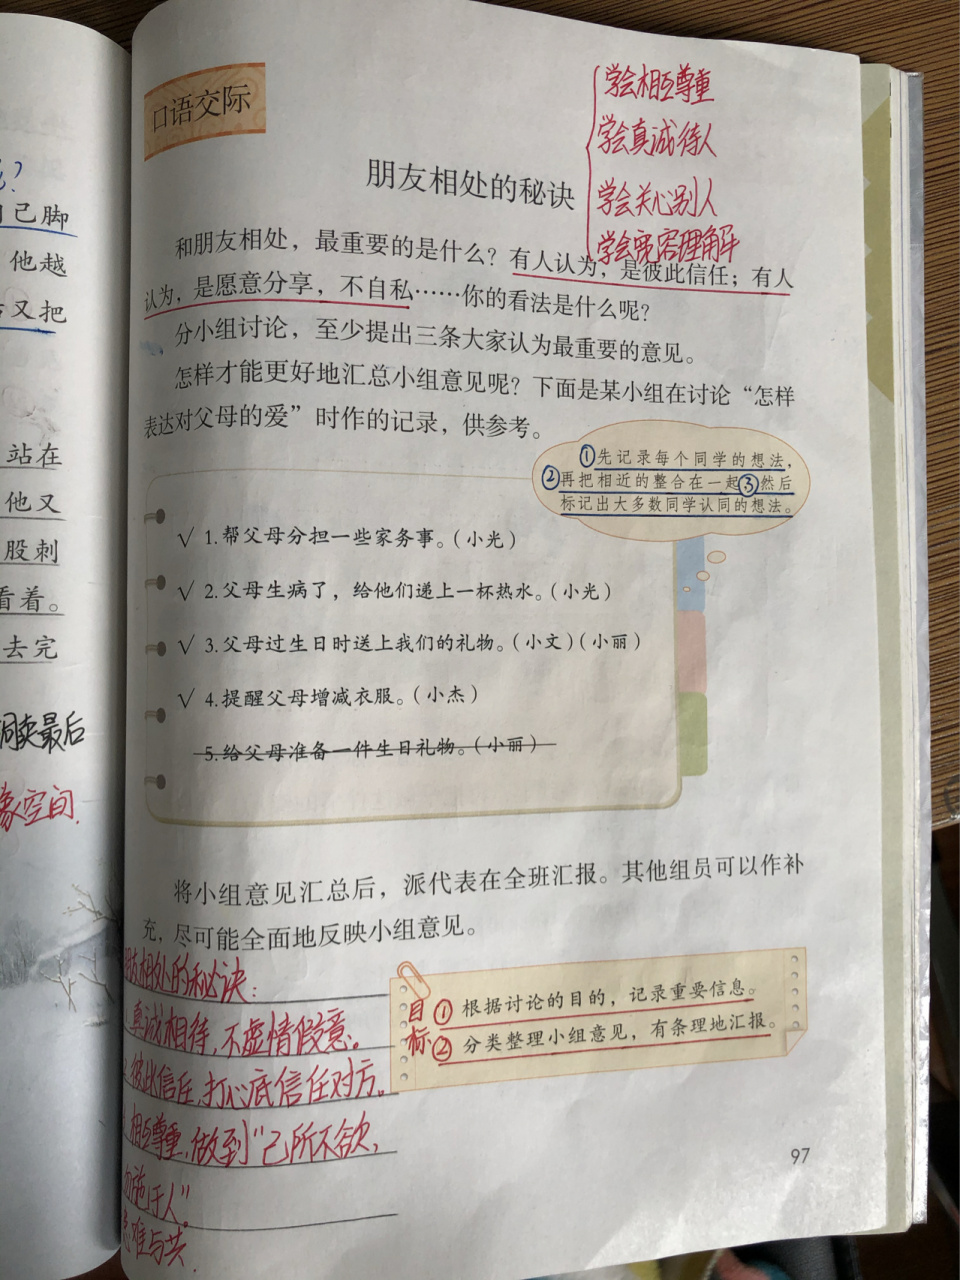 己脚
他越
又把
站在
他又
股刺
看着。
去完
卖最后
象空间.
口语交际
学会相互尊重
学会真诚待人
学会关心别人
学会宽容理解
朋友相处的秘诀
和朋友相处，最重要的是什么？有人认为，是彼此信任；有人
认为，是愿意分享，不自私……你的看法是什么呢？
分小组讨论，至少提出三条大家认为最重要的意见。
怎样才能更好地汇总小组意见呢？下面是某小组在讨论“怎样
表达对父母的爱”时作的记录，供参考。
①先记录每个同学的想法，
②再把相近的整合在一起③然后
标记出大多数同学认同的想法。
√ 1.帮父母分担一些家务事。（小光）
√ 2.父母生病了，给他们递上一杯热水。（小光）
√ 3.父母过生日时送上我们的礼物。（小文）（小丽）
√ 4.提醒父母增减衣服。（小杰）
5.给父母准备一件生日礼物。（小丽）
将小组意见汇总后，派代表在全班汇报。其他组员可以作补
充，尽可能全面地反映小组意见。
朋友相处的秘诀：
真诚相待，不虚情假意。
彼此信任，打心底信任对方。
相互尊重，做到“己所不欲，
勿施于人”。
患难与共.
目标
① 根据讨论的目的，记录重要信息。
② 分类整理小组意见，有条理地汇报。
97